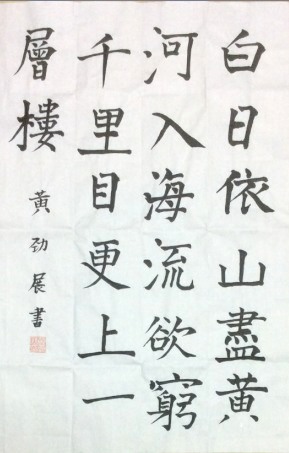 白日依山盡黃
河入海流欲窮
千里目更上一
層樓
黃劲展書